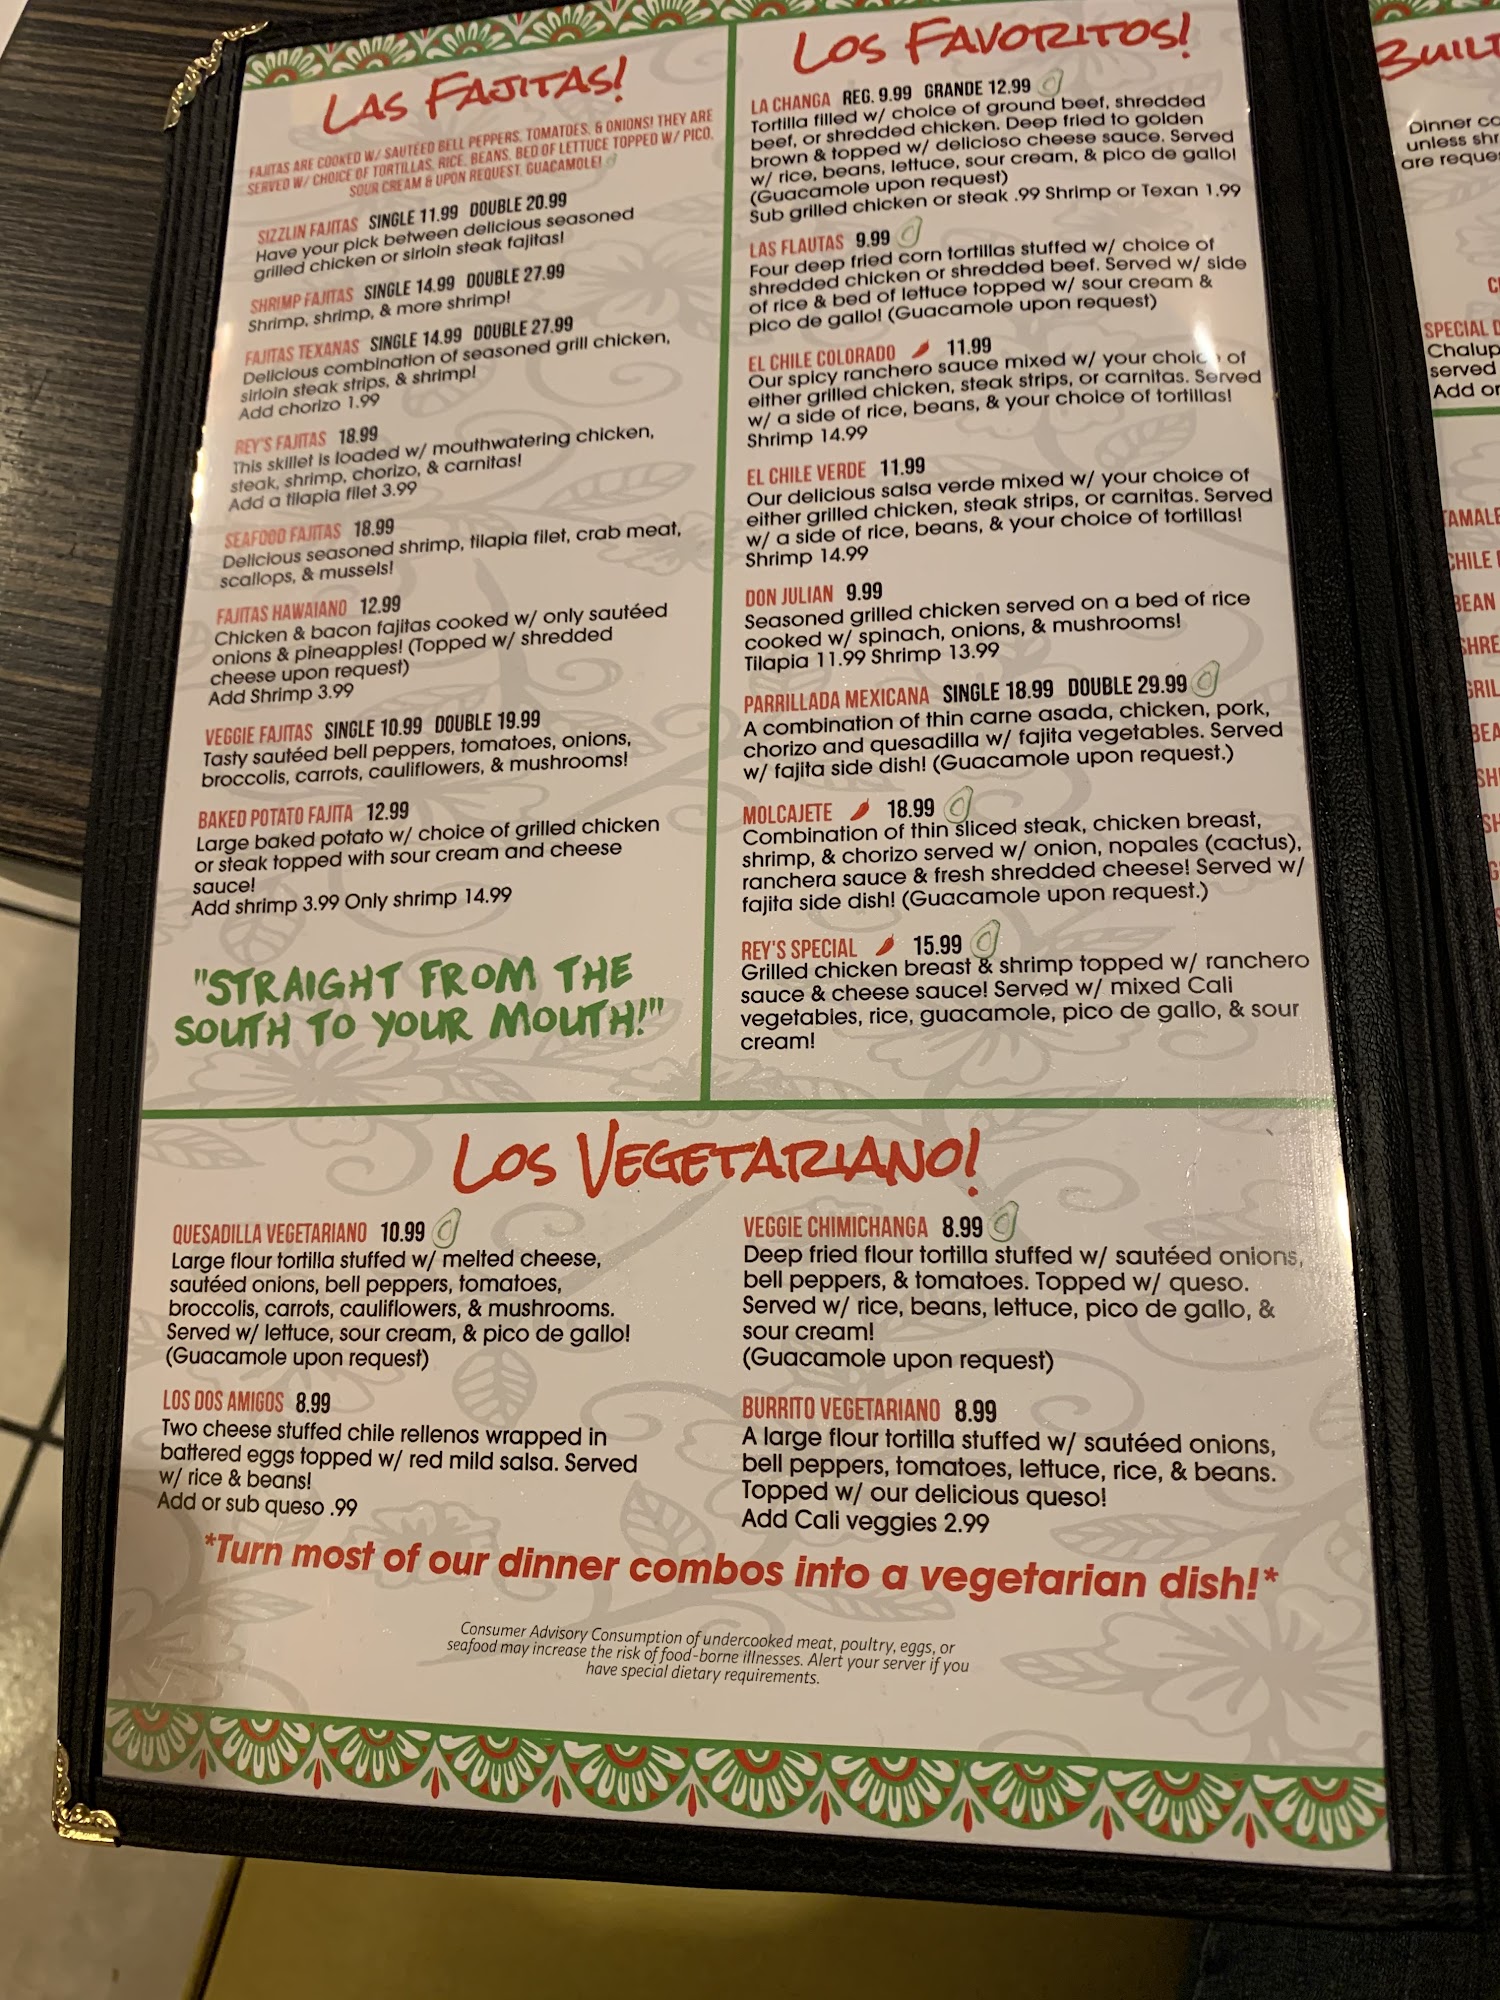 Las Fajitas!
FAJITAS ARE COOKED W/ SAUTÉED BELL PEPPERS, TOMATOES, & ONIONS! THEY ARE
SERVED W/ CHOICE OF TORTILLAS, RICE, BEANS, BED OF LETTUCE TOPPED W/ PICO,
SOUR CREAM & UPON REQUEST, GUACAMOLE!
SIZZLIN FAJITAS SINGLE 11.99 DOUBLE 20.99
Have your pick between delicious seasoned
grilled chicken or sirloin steak fajitas!
SHRIMP FAJITAS SINGLE 14.99 DOUBLE 27.99
Shrimp, shrimp, & more shrimp!
FAJITAS TEXANAS SINGLE 14.99 DOUBLE 27.99
Delicious combination of seasoned grill chicken,
sirloin steak strips, & shrimp!
Add chorizo 1.99
REY'S FAJITAS 18.99
This skillet is loaded w/ mouthwatering chicken,
steak, shrimp, chorizo, & carnitas!
Add a tilapia filet 3.99
SEAFOOD FAJITAS 18.99
Delicious seasoned shrimp, tilapia filet, crab meat,
scallops, & mussels!
FAJITAS HAWAIANO 12.99
Chicken & bacon fajitas cooked w/ only sautéed
onions & pineapples! (Topped w/ shredded
cheese upon request)
Add Shrimp 3.99
VEGGIE FAJITAS SINGLE 10.99 DOUBLE 19.99
Tasty sautéed bell peppers, tomatoes, onions,
broccolis, carrots, cauliflowers, & mushrooms!
BAKED POTATO FAJITA 12.99
Large baked potato w/ choice of grilled chicken
or steak topped with sour cream and cheese
sauce!
Add shrimp 3.99 Only shrimp 14.99
"STRAIGHT FROM THE
SOUTH TO YOUR MOUTH!"
Los Favoritos!
LA CHANGA REG. 9.99 GRANDE 12.99
Tortilla filled w/ choice of ground beef, shredded
beef, or shredded chicken. Deep fried to golden
brown & topped w/ delicioso cheese sauce. Served
w/ rice, beans, lettuce, sour cream, & pico de gallo!
(Guacamole upon request)
Sub grilled chicken or steak .99 Shrimp or Texan 1.99
LAS FLAUTAS 9.99
Four deep fried corn tortillas stuffed w/ choice of
shredded chicken or shredded beef. Served w/ side
of rice & bed of lettuce topped w/ sour cream &
pico de gallo! (Guacamole upon request)
EL CHILE COLORADO 11.99
Our spicy ranchero sauce mixed w/ your choice of
either grilled chicken, steak strips, or carnitas. Served
w/ a side of rice, beans, & your choice of tortillas!
Shrimp 14.99
EL CHILE VERDE 11.99
Our delicious salsa verde mixed w/ your choice of
either grilled chicken, steak strips, or carnitas. Served
w/ a side of rice, beans, & your choice of tortillas!
Shrimp 14.99
DON JULIAN 9.99
Seasoned grilled chicken served on a bed of rice
cooked w/ spinach, onions, & mushrooms!
Tilapia 11.99 Shrimp 13.99
PARRILLADA MEXICANA SINGLE 18.99 DOUBLE 29.99
A combination of thin carne asada, chicken, pork,
chorizo and quesadilla w/ fajita vegetables. Served
w/ fajita side dish! (Guacamole upon request.)
MOLCAJETE 18.99
Combination of thin sliced steak, chicken breast,
shrimp, & chorizo served w/ onion, nopales (cactus),
ranchera sauce & fresh shredded cheese! Served w/
fajita side dish! (Guacamole upon request.)
REY'S SPECIAL 15.99
Grilled chicken breast & shrimp topped w/ ranchero
sauce & cheese sauce! Served w/ mixed Cali
vegetables, rice, guacamole, pico de gallo, & sour
cream!
Los Vegetariano!
QUESADILLA VEGETARIANO 10.99
Large flour tortilla stuffed w/ melted cheese,
sautéed onions, bell peppers, tomatoes,
broccolis, carrots, cauliflowers, & mushrooms.
Served w/ lettuce, sour cream, & pico de gallo!
(Guacamole upon request)
LOS DOS AMIGOS 8.99
Two cheese stuffed chile rellenos wrapped in
battered eggs topped w/ red mild salsa. Served
w/ rice & beans!
Add or sub queso .99
VEGGIE CHIMICHANGA 8.99
Deep fried flour tortilla stuffed w/ sautéed onions,
bell peppers, & tomatoes. Topped w/ queso.
Served w/ rice, beans, lettuce, pico de gallo, &
sour cream!
(Guacamole upon request)
BURRITO VEGETARIANO 8.99
A large flour tortilla stuffed w/ sautéed onions,
bell peppers, tomatoes, lettuce, rice, & beans.
Topped w/ our delicious queso!
Add Cali veggies 2.99
*Turn most of our dinner combos into a vegetarian dish!*
Consumer Advisory Consumption of undercooked meat, poultry, eggs, or
seafood may increase the risk of food-borne illnesses. Alert your server if you
have special dietary requirements.
Dinner
unless
are
SPECIAL
served
Add
CHILE
BEAN